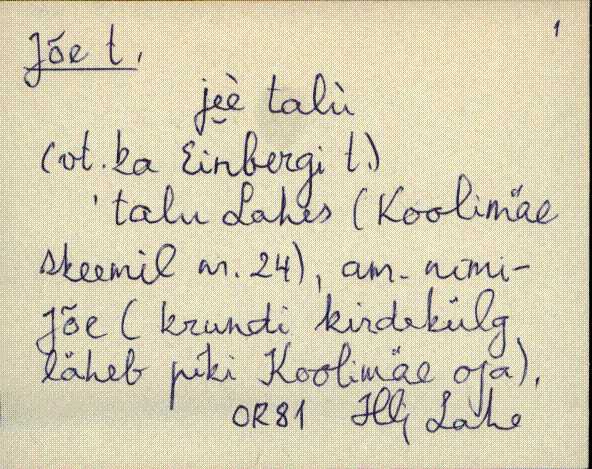 1
Jõe t.
jèè talù
(vt. ka Einbergi t.)
'talu Lahes (Koolimäe
skeemil nr. 24), am. nimi-
Jõe (krundi kirdekülg
läheb piki Koolimäe oja).
OR81 Hlj Lahe